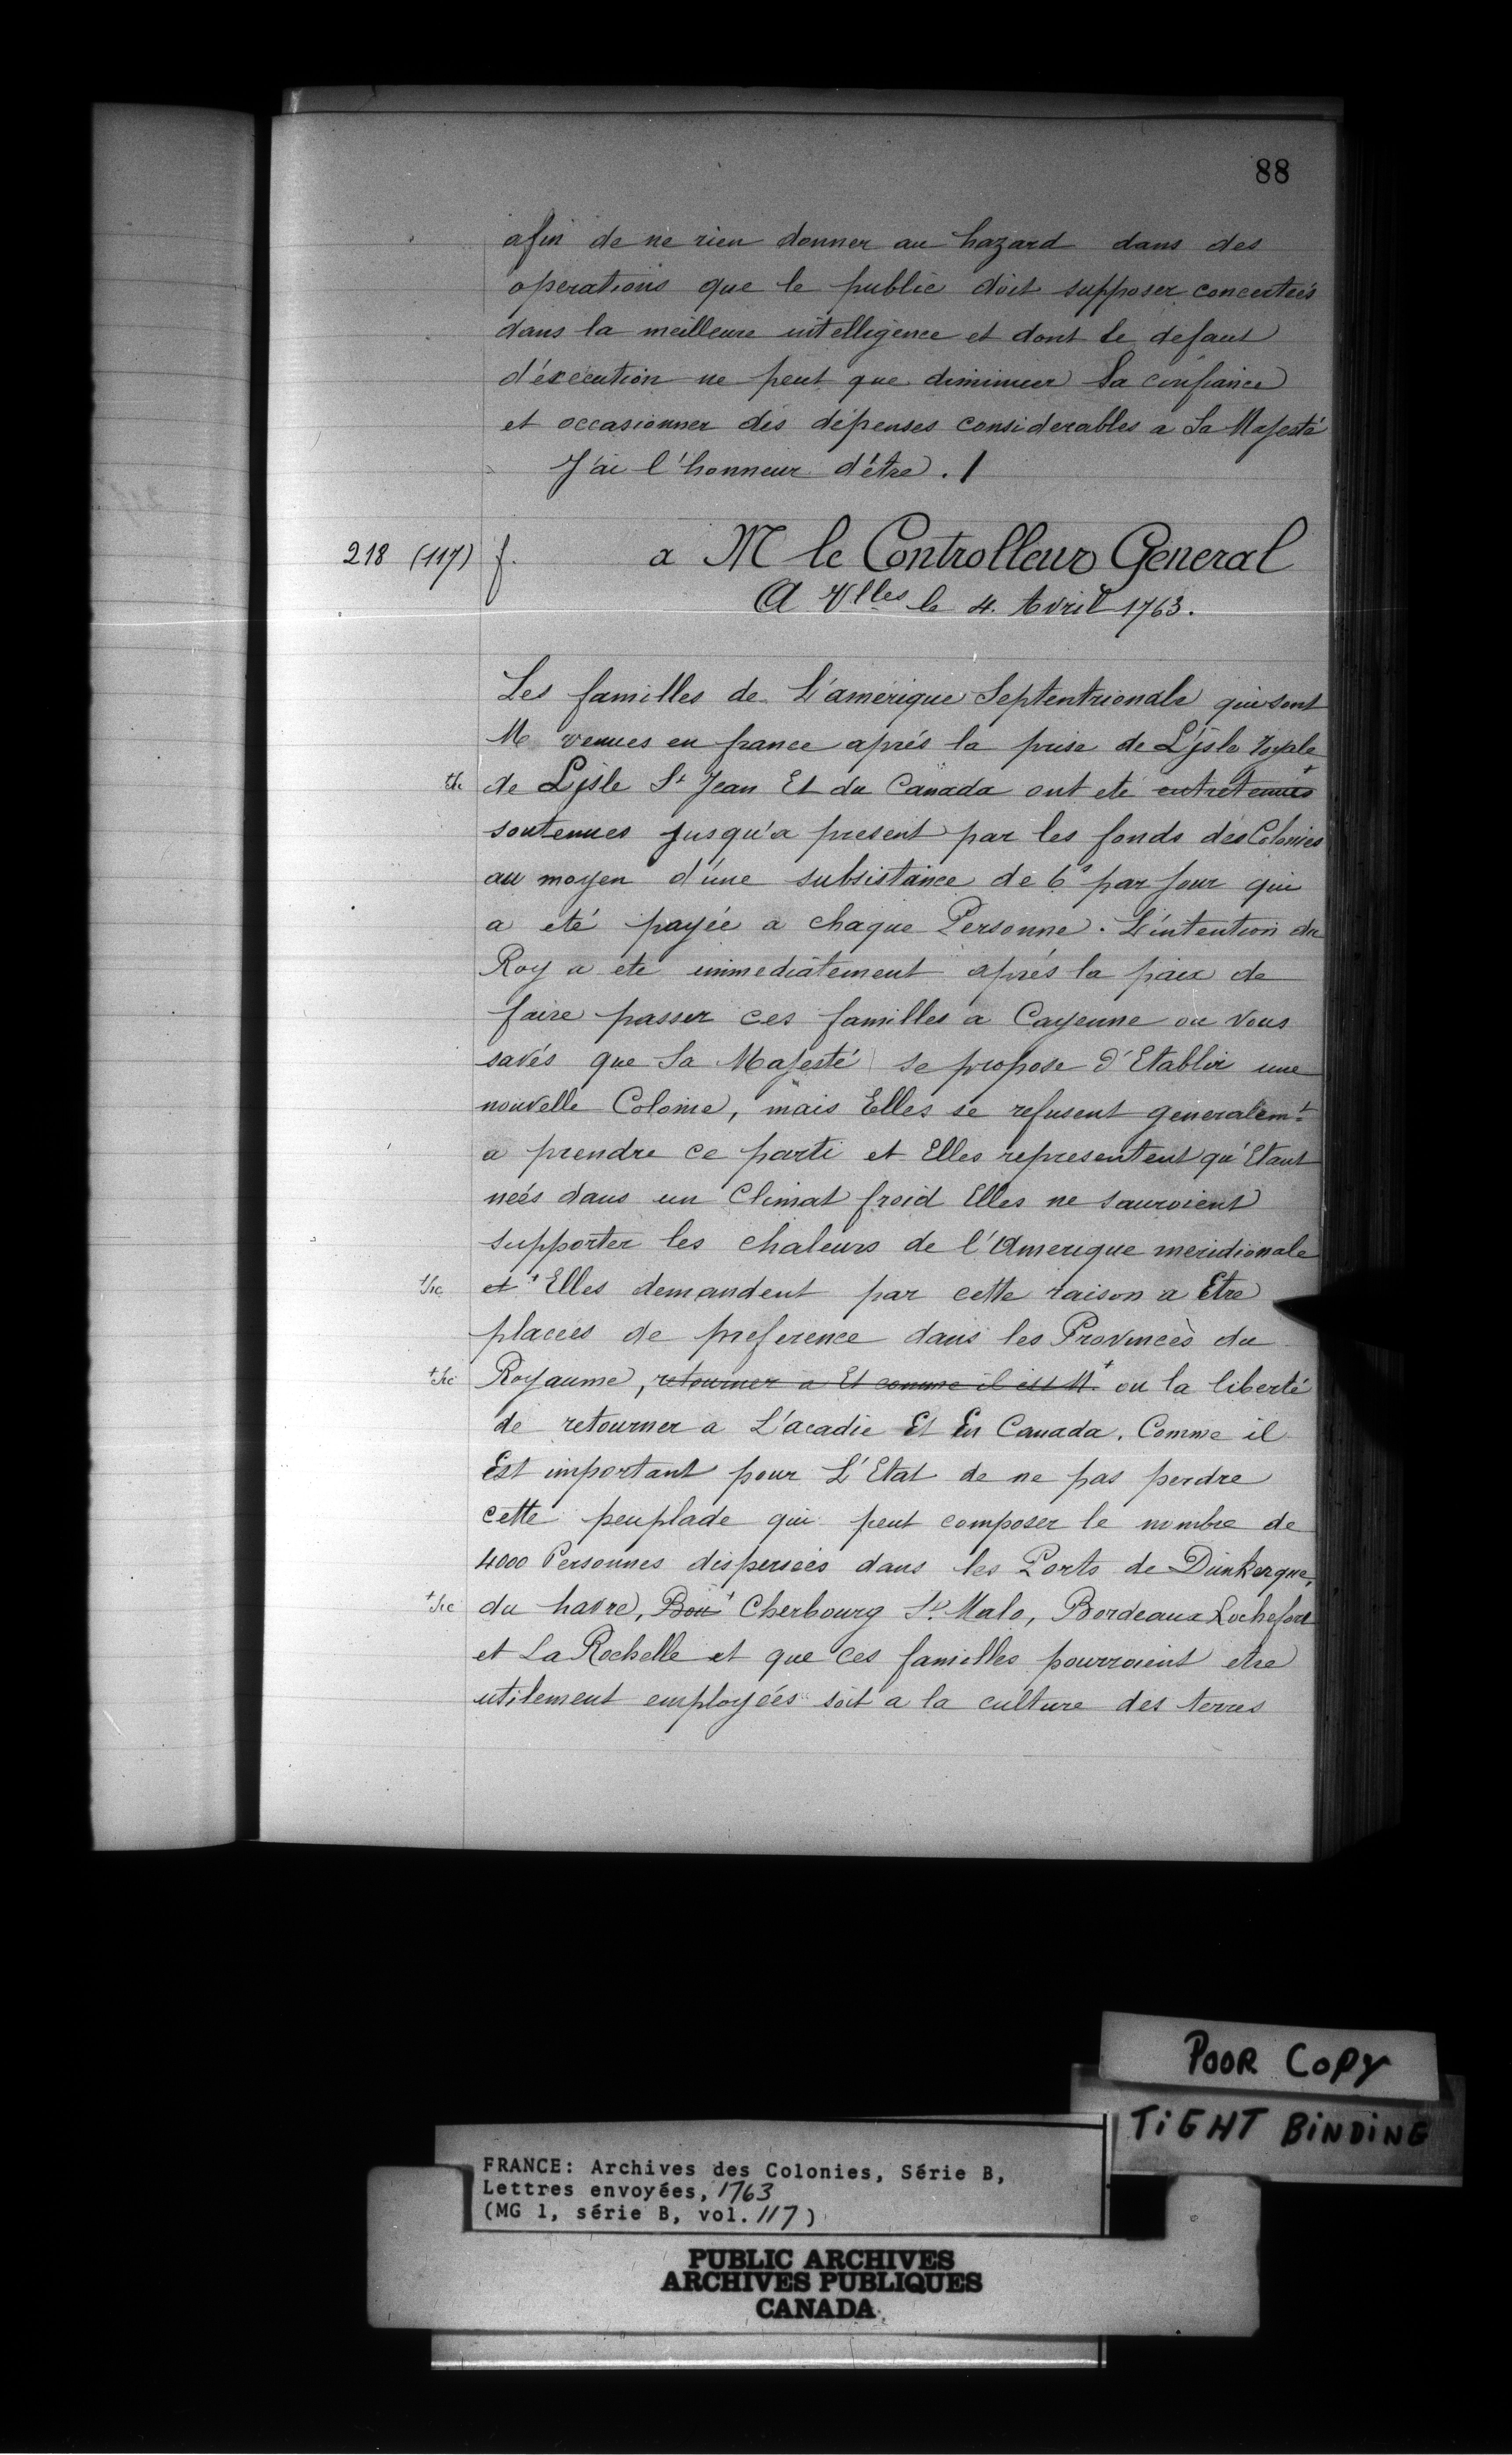 88
afin de ne rien donner au hazard dans des
operations que le public doit supposer concertées
dans la meilleure intelligence et dont le defaut
d'éxecution ne peut que diminuer Sa confiance
et occasionner des dépenses considerables a Sa Majesté
J'ai l'honneur d'être. /
218 (117) f. a M le Controlleur General
A Vlles le 4. Avril 1763.
Les familles de L'amerique Septentrionale qui sont
M venues en france aprés la prise de L'jsle royale
+sic de Ljsle St Jean Et du Canada ont eté entretenues+
soutenues jusqu'a present par les fonds des Colonies
au moyen d'une subsistance de 6s par jour qui
a eté payée a chaque Personne. L'intention du
Roy a ete immediatement aprés la paix de
faire passer ces familles a Cayenne ou Vous
savés que Sa Majesté se propose d'Etablir une
nouvelle Colonie, mais Elles se refusent generalemt
a prendre ce parti et Elles representent qu'Etant
neés dans un Climat froid Elles ne sauroient
supporter les chaleurs de l'Amerique meridionale
+sic et + Elles demandent par cette raison a Etre
placées de preference dans les Provinces du
+sic Royaume, retourner a Et comme il est M.+ ou la liberté
de retourner a L'acadie Et En Canada. Comme il
Est important pour L'Etat de ne pas perdre
cette peuplade qui peut composer le nombre de
4000 Personnes disperseés dans les Ports de Dunkerque,
+sic du havre, Bou+ Cherbourg St Malo, Bordeaux Rochefort
et La Rochelle et que ces familles pourroient etre
utilement employées soit a la culture des terres
POOR COPY
TIGHT BINDING
FRANCE: Archives des Colonies, Série B,
Lettres envoyées, 1763
(MG 1, série B, vol. 117)
PUBLIC ARCHIVES
ARCHIVES PUBLIQUES
CANADA